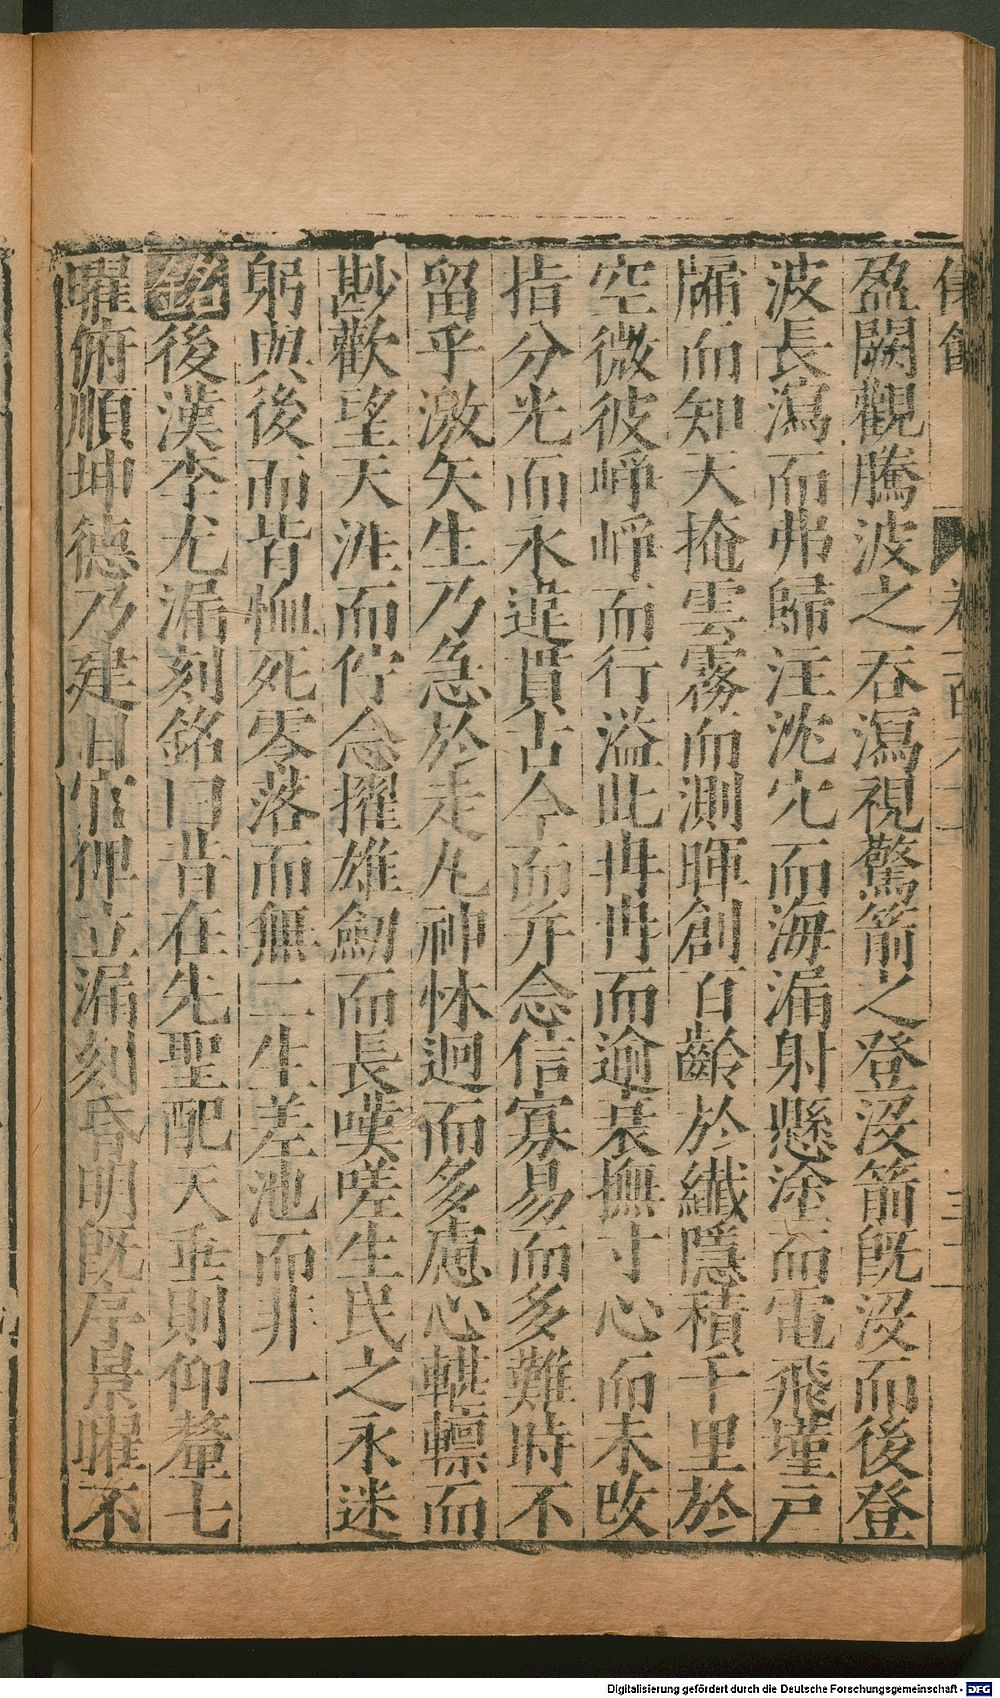 盈闕觀騰波之吞瀉視驚箭之登沒箭旣沒而後登
波長瀉而弗歸注沈穴而海漏射懸塗而電飛墐戸
牖而知天掩雲霧而測暉創百齡於纖隱積千里於
空微彼崢崢而行溢此冉冉而逾衰撫寸心而未改
指分光而永違貫古今而并念信寡易而多難時不
留乎激矢生乃急於走丸神怵迥而多慮心轗轗而
尠歡望天涯而佇念擢雄劒而長嘆嗟生民之永迷
躬與後而皆恤死零落而無二生差池而非一
銘後漢李尤漏刻銘曰昔在先聖配天垂則仰釐七
曜俯順坤德乃建日官俾立漏刻昏明旣序景曜不
Digitalisierung gefördert durch die Deutsche Forschungsgemeinschaft - DFG